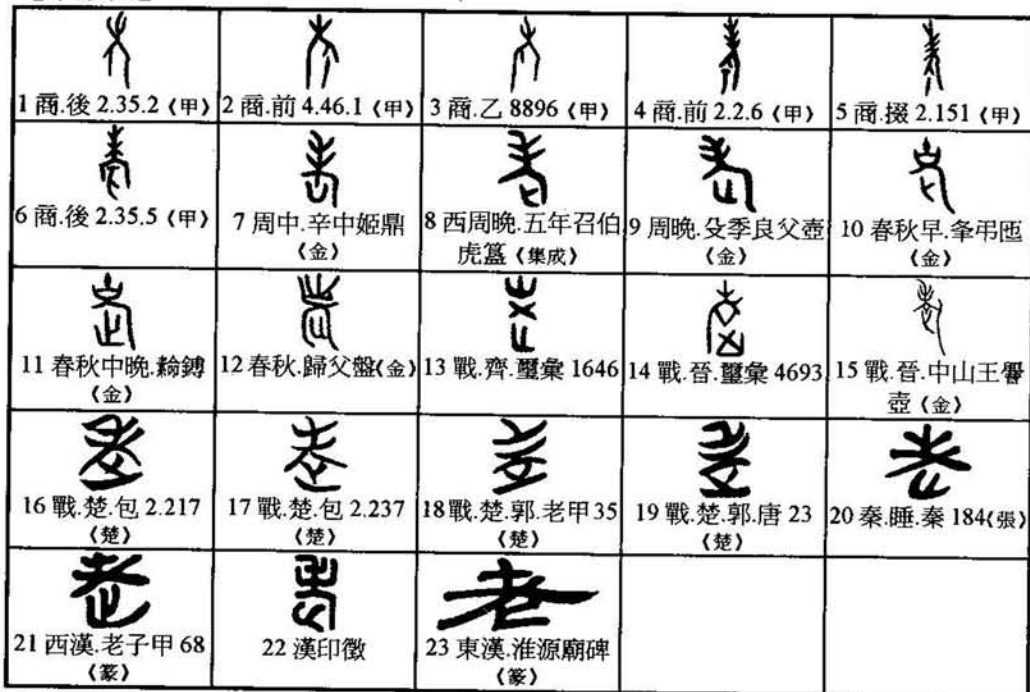 1 商.後 2.35.2《甲》
2 商.前 4.46.1《甲》
3 商.乙 8896《甲》
4 商.前 2.2.6《甲》
5 商.掇 2.151《甲》
6 商.後 2.35.5《甲》
7 周中.辛中姬鼎
《金》
8 西周晚.五年召伯
虎簋《集成》
9 周晚.殳季良父壺
《金》
10 春秋早.夆弔匜
《金》
11 春秋中晚.鎛
《金》
12 春秋.歸父盤《金》
13 戰.齊.璽彙 1646
14 戰.晉.璽彙 4693
15 戰.晉.中山王
壺《金》
16 戰.楚.包 2.217
《楚》
17 戰.楚.包 2.237
《楚》
18 戰.楚.郭.老甲 35
《楚》
19 戰.楚.郭.唐 23
《楚》
20 秦.睡.秦 184《張》
21 西漢.老子甲 68
《篆》
22 漢印徵
老
23 東漢.淮源廟碑
《篆》